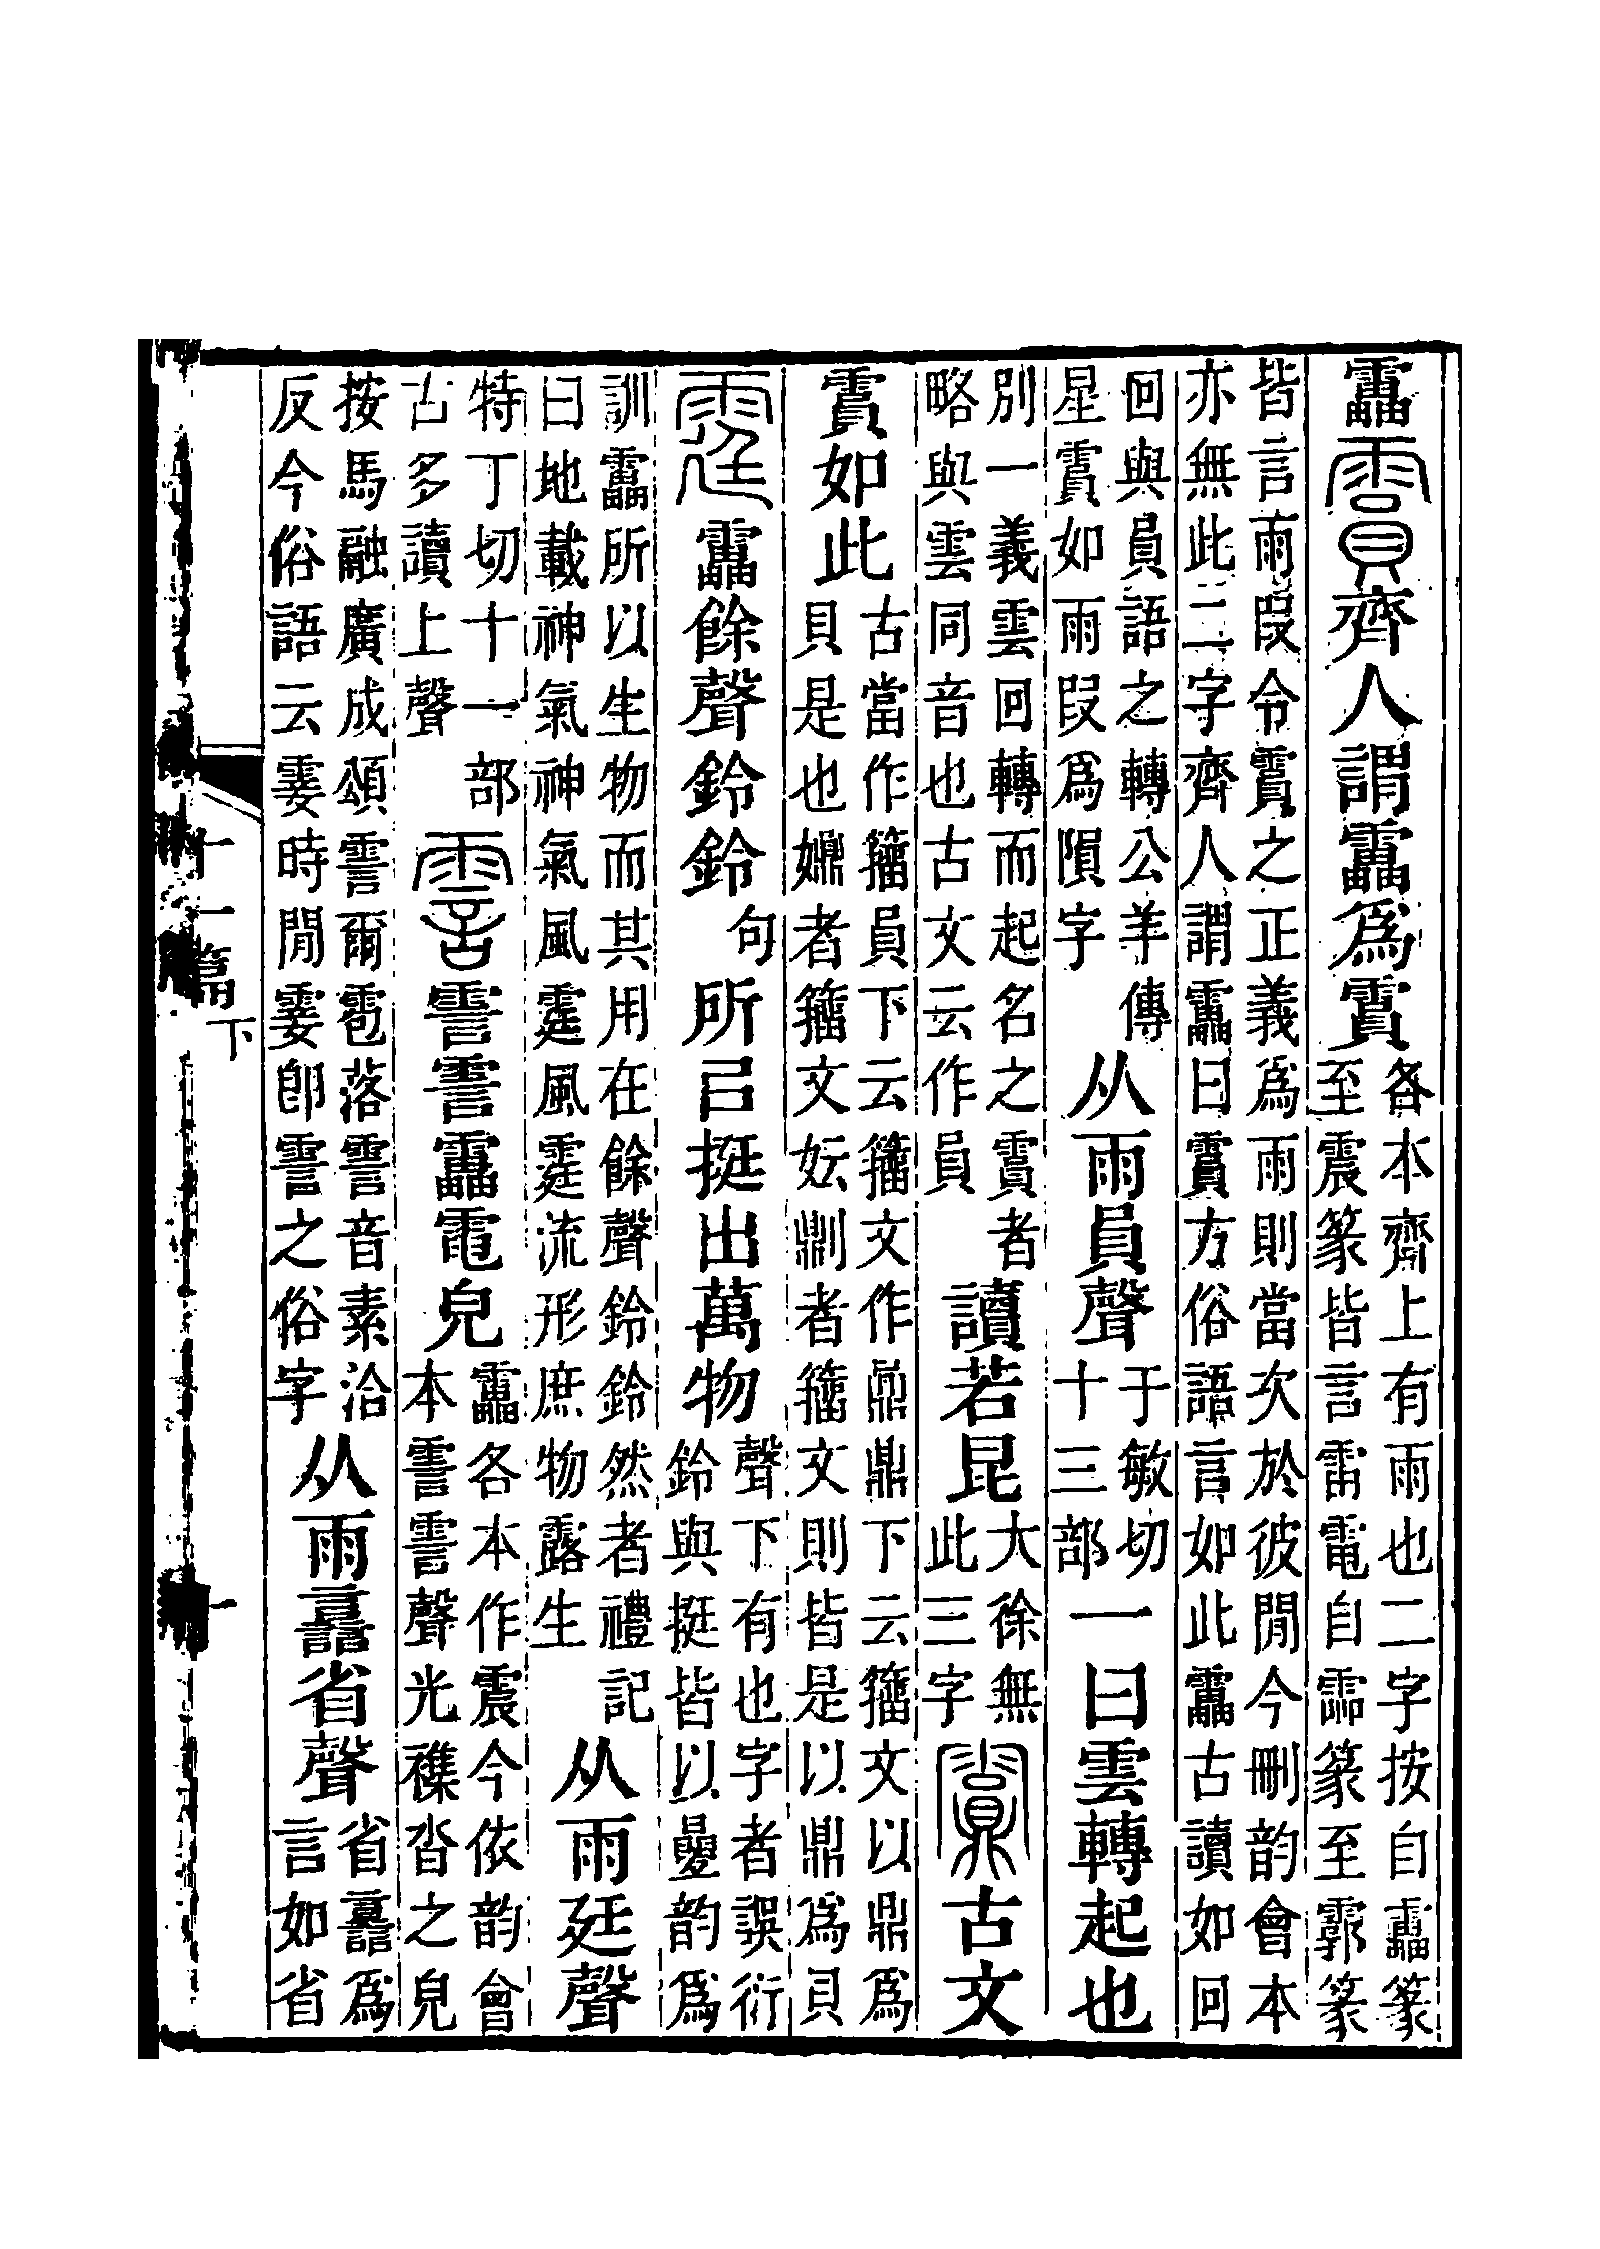 靁霣齊人謂靁爲霣各本齊上有雨也二字按自靁篆至震篆皆言雷電自霝篆至霩篆
皆言雨叚令霣之正義爲雨則當次於彼閒今刪韵會本亦無此二字齊人謂靁曰霣方俗語言如此靁古讀如回
回與員語之轉公羊傳星霣如雨叚爲隕字从雨員聲于敏切十三部一曰雲轉起也
別一義雲回轉而起名之霣者略與雲同音也古文云作員讀若昆大徐無此三字古文
霣如此古當作籒員下云籒文作𪔅鼎下云籒文以鼎爲貝是也𡣬者籒文妘𠟻者籒文則皆是以鼎爲貝
霆靁餘聲鈴鈴句所㠯挺出萬物聲下有也字者誤衍鈴與挺皆以疊韵爲
訓靁所以生物而其用在餘聲鈴鈴然者禮記曰地載神氣神氣風霆風霆流形庶物露生从雨廷聲
特丁切十一部古多讀上聲霅霅霅靁電皃靁各本作震今依韵會本霅霅聲光襍沓之皃
按馬融廣成頌霅爾雹落霅音素洽反今俗語云霎時閒霎卽霅之俗字从雨譶省聲省譶爲言如省
十一篇下 一